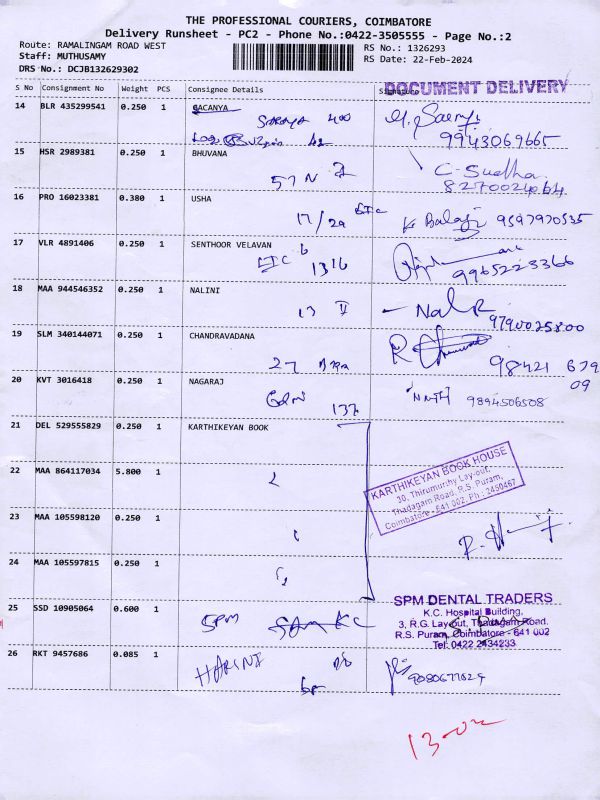 THE PROFESSIONAL COURIERS, COIMBATORE
Delivery Runsheet - PC2 - Phone No.:0422-3505555 - Page No.:2
Route: RAMALINGAM ROAD WEST
RS No.: 1326293
Staff: MUTHUSAMY
RS Date: 22-Feb-2024
DRS No.: DCJB132629302
DOCUMENT DELIVERY
S No Consignment No Weight PCS Consignee Details
14 BLR 435299541 0.250 1
15 HSR 2989381 0.250 1 BHUVANA
57 N
C-Sudha
8270024064
16 PRO 16023381 0.380 1 USHA
17/29
K Balaji 9597970535
17 VLR 4891406 0.250 1 SENTHOOR VELAVAN
1316
9965223366
18 MAA 944546352 0.250 1 NALINI
13 V
9790025800
19 SLM 340144071 0.250 1 CHANDRAVADANA
27
98421 679
09
20 KVT 3016418 0.250 1 NAGARAJ
137
9894506508
21 DEL 529555829 0.250 1 KARTHIKEYAN BOOK
22 MAA 864117034 5.800 1
KARTHIKEYAN BOOK HOUSE
30, Thirumurthy Lay-out,
Thadagam Road, R.S. Puram,
Coimbatore - 641 002. Ph : 2450467
23 MAA 105598120 0.250 1
24 MAA 105597815 0.250 1
25 SSD 10905064 0.600 1
SPM
SPM DENTAL TRADERS
K.C. Hospital Building,
3, R.G. Lay-out, Thadagam Road.
R.S. Puram, Coimbatore - 641 002
Tel: 0422 2434233
26 RKT 9457686 0.085 1 HARINI
13-02